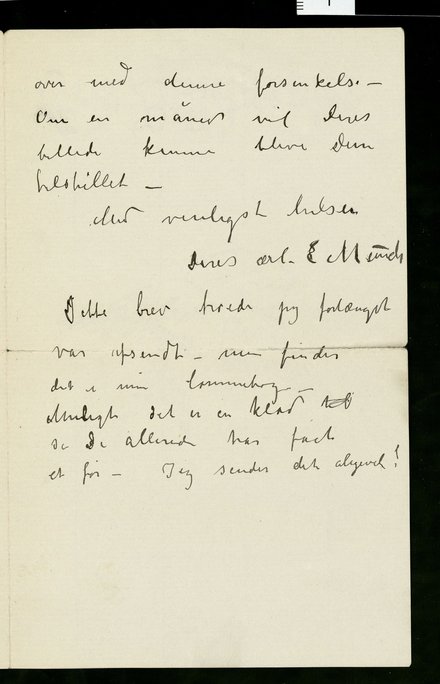 over med denne forsinkelse –
Om en måned vil Deres
billede kunne blive Dem
tilstillet –
Med venligst hilsen
Deres ærb. E Munch
Dette brev troede jeg forlængst
var afsendt – men finder
det i min lommebog –
Muligt det er en klad
så De allerede har fået
et før – Jeg sender det alligevel!